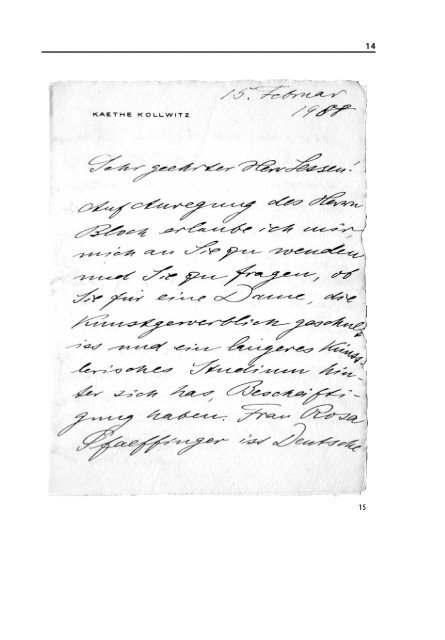 14
15. Februar
KAETHE KOLLWITZ
Sehr geehrter Herr Jessen!
Auf Anregung des Herrn
Bloch erlaube ich mir,
mich an Sie zu wenden
und Sie zu fragen, ob
Sie für eine Dame, die
kunstgewerblich geschult
ist und ein längeres künst-
lerisches Studium hin-
ter sich hat, Beschäfti-
gung haben. Frau Rosa
Pfaeffinger ist Deutsche
15